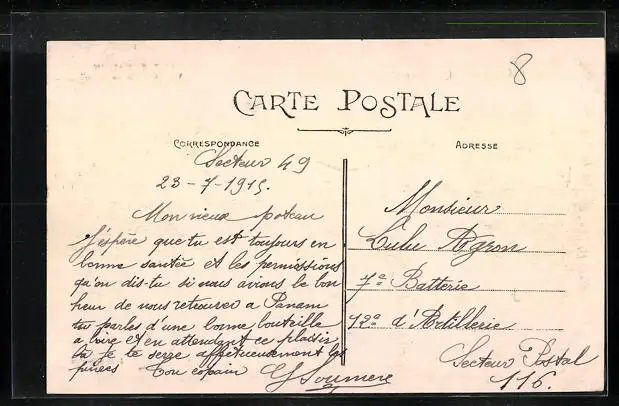 8
CARTE POSTALE
CORRESPONDANCE
ADRESSE
Secteur 49
23-7-1915.
Mon vieux poteau
J'espère que tu est toujours en
bonne santée et les permissions
qu'en dis-tu si nous avions le bon
heur de nous retrouver a Panam
tu parles d'une bonne bouteille
a boire et en attendant ce plaisir
la je te serge affectueusement les
pinces Ton copain
Monsieur
7e Batterie
12e d'Artillerie
Secteur Postal
116.